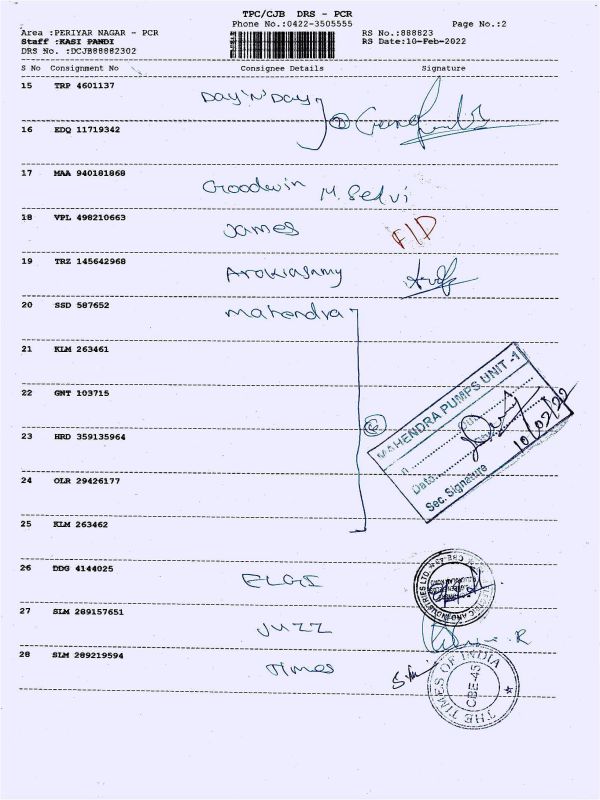 TPC/CJB DRS - PCR
Phone No.:0422-3505555 Page No.:2
Area :PERIYAR NAGAR - PCR RS No.:888823
Staff :KASI PANDI RS Date:10-Feb-2022
DRS No. :DCJB88882302
S No Consignment No Consignee Details Signature
15 TRP 4601137 Day'N'Day
16 EDQ 11719342 2
17 MAA 940181868 Goodwin M. Selvi
18 VPL 498210663 James F/D
19 TRZ 145642968 Arokiasamy
20 SSD 587652 Mahendra
21 KLM 263461
22 GMT 103715 6
MAHENDRA PUMPS UNIT -1
23 HRD 359135964
Date: 10/02/22
Sec. Signature
24 OLR 29426177
25 KLM 263462
26 DDG 4144025 ELGI
27 SLM 289157651 JUZZ
28 SLM 289219594 Times
THE TIMES OF INDIA
CBE-45